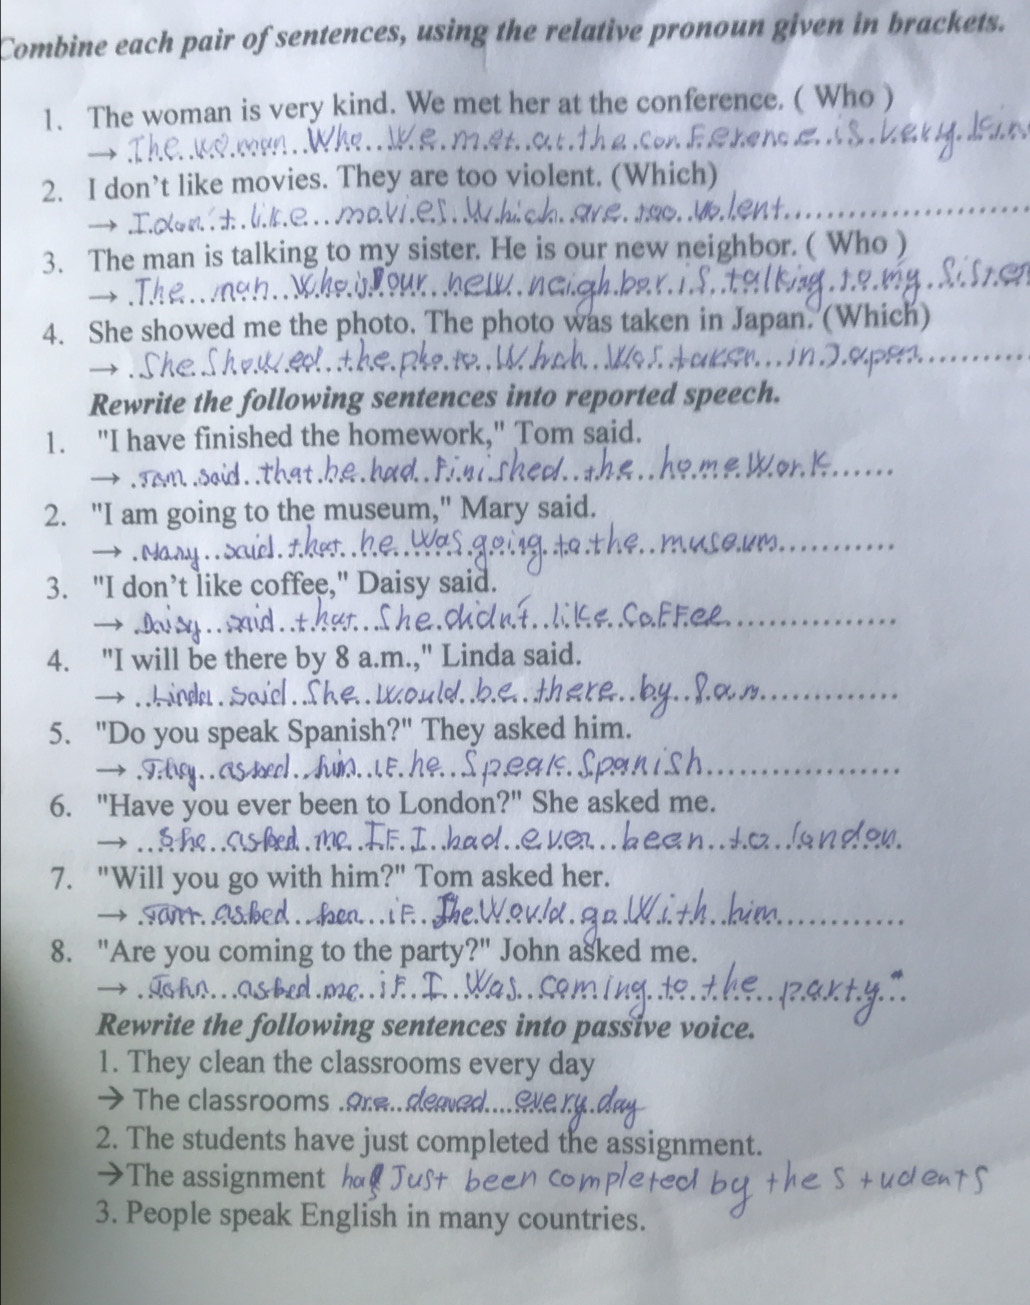 Combine each pair of sentences, using the relative pronoun given in brackets.
1. The woman is very kind. We met her at the conference. ( Who )
→ The woman Who We met at the conference is very kin
2. I don't like movies. They are too violent. (Which)
→ I don't like movies Which are too violent
3. The man is talking to my sister. He is our new neighbor. ( Who )
→ The man Who is our new neighbor is talking to my Sister
4. She showed me the photo. The photo was taken in Japan. (Which)
→ She Showed the photo Which Was taken in Japan
Rewrite the following sentences into reported speech.
1. "I have finished the homework," Tom said.
→ Tom said that he had finished the homeWork
2. "I am going to the museum," Mary said.
→ Mary said that he Was going to the museum
3. "I don't like coffee," Daisy said.
→ Daisy said that She didn't like CoFFee
4. "I will be there by 8 a.m.," Linda said.
→ Linda said She would be there by 8 am
5. "Do you speak Spanish?" They asked him.
→ They asked him iF he Speak Spanish
6. "Have you ever been to London?" She asked me.
→ She asked me IF I had ever been to london
7. "Will you go with him?" Tom asked her.
→ Tom asked her iF She Would go With him
8. "Are you coming to the party?" John asked me.
→ John asked me iF I Was coming to the party"
Rewrite the following sentences into passive voice.
1. They clean the classrooms every day
→ The classrooms are cleaned every day
2. The students have just completed the assignment.
→The assignment has Just been completed by the students
3. People speak English in many countries.